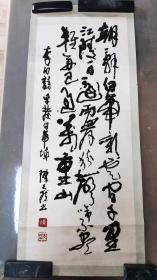 朝辞白帝彩云间千里
江陵一日还两岸猿声啼不住
轻舟已过万重山
李白诗早发白帝城